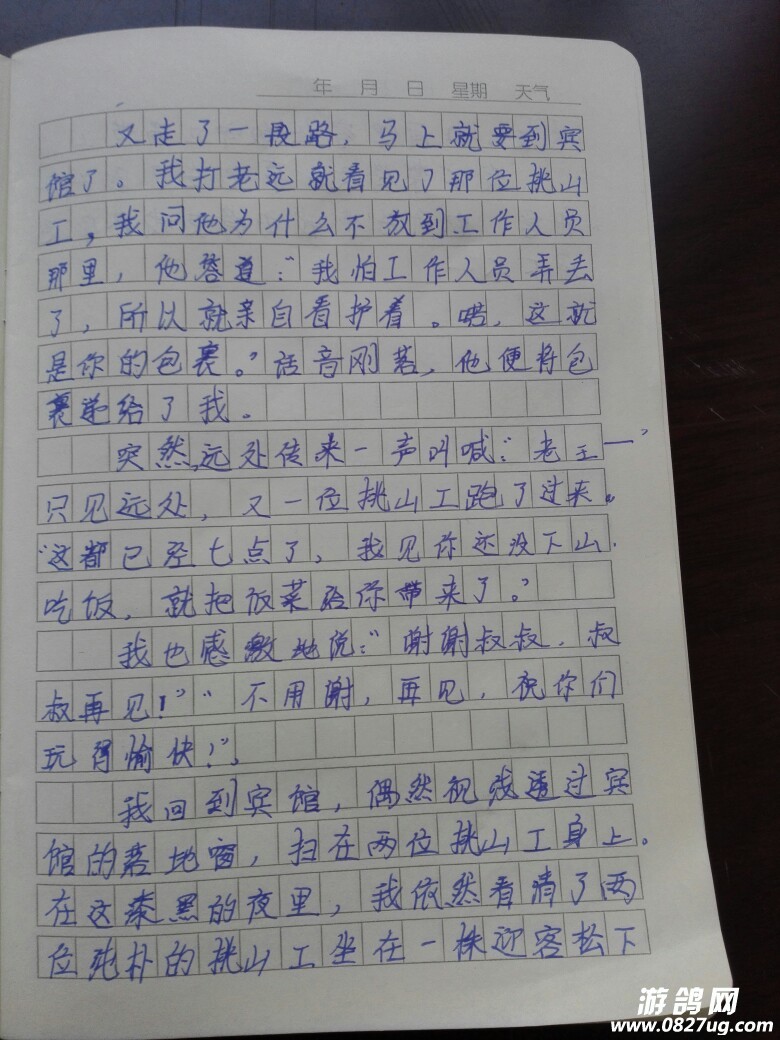 年 月 日 星期 天气
又走了一段路，马上就要到宾
馆了。我打老远就看见了那位挑山
工，我问他为什么不放到工作人员
那里，他答道：“我怕工作人员弄丢
了，所以就亲自看护着。喏，这就
是你的包裹。”话音刚落，他便将包
裹递给了我。
突然，远处传来一声叫喊：“老王—”
只见远处，又一位挑山工跑了过来。
“这都已经七点了，我见你还没下山
吃饭，就把饭菜给你带来了。”
我也感激地说：“谢谢叔叔，叔
叔再见！”“不用谢，再见，祝你们
玩得愉快！”
我回到宾馆，偶然视线透过宾
馆的落地窗，扫在两位挑山工身上。
在这漆黑的夜里，我依然看清了两
位纯朴的挑山工坐在一株迎客松下
游鸽网
www.0827ug.com